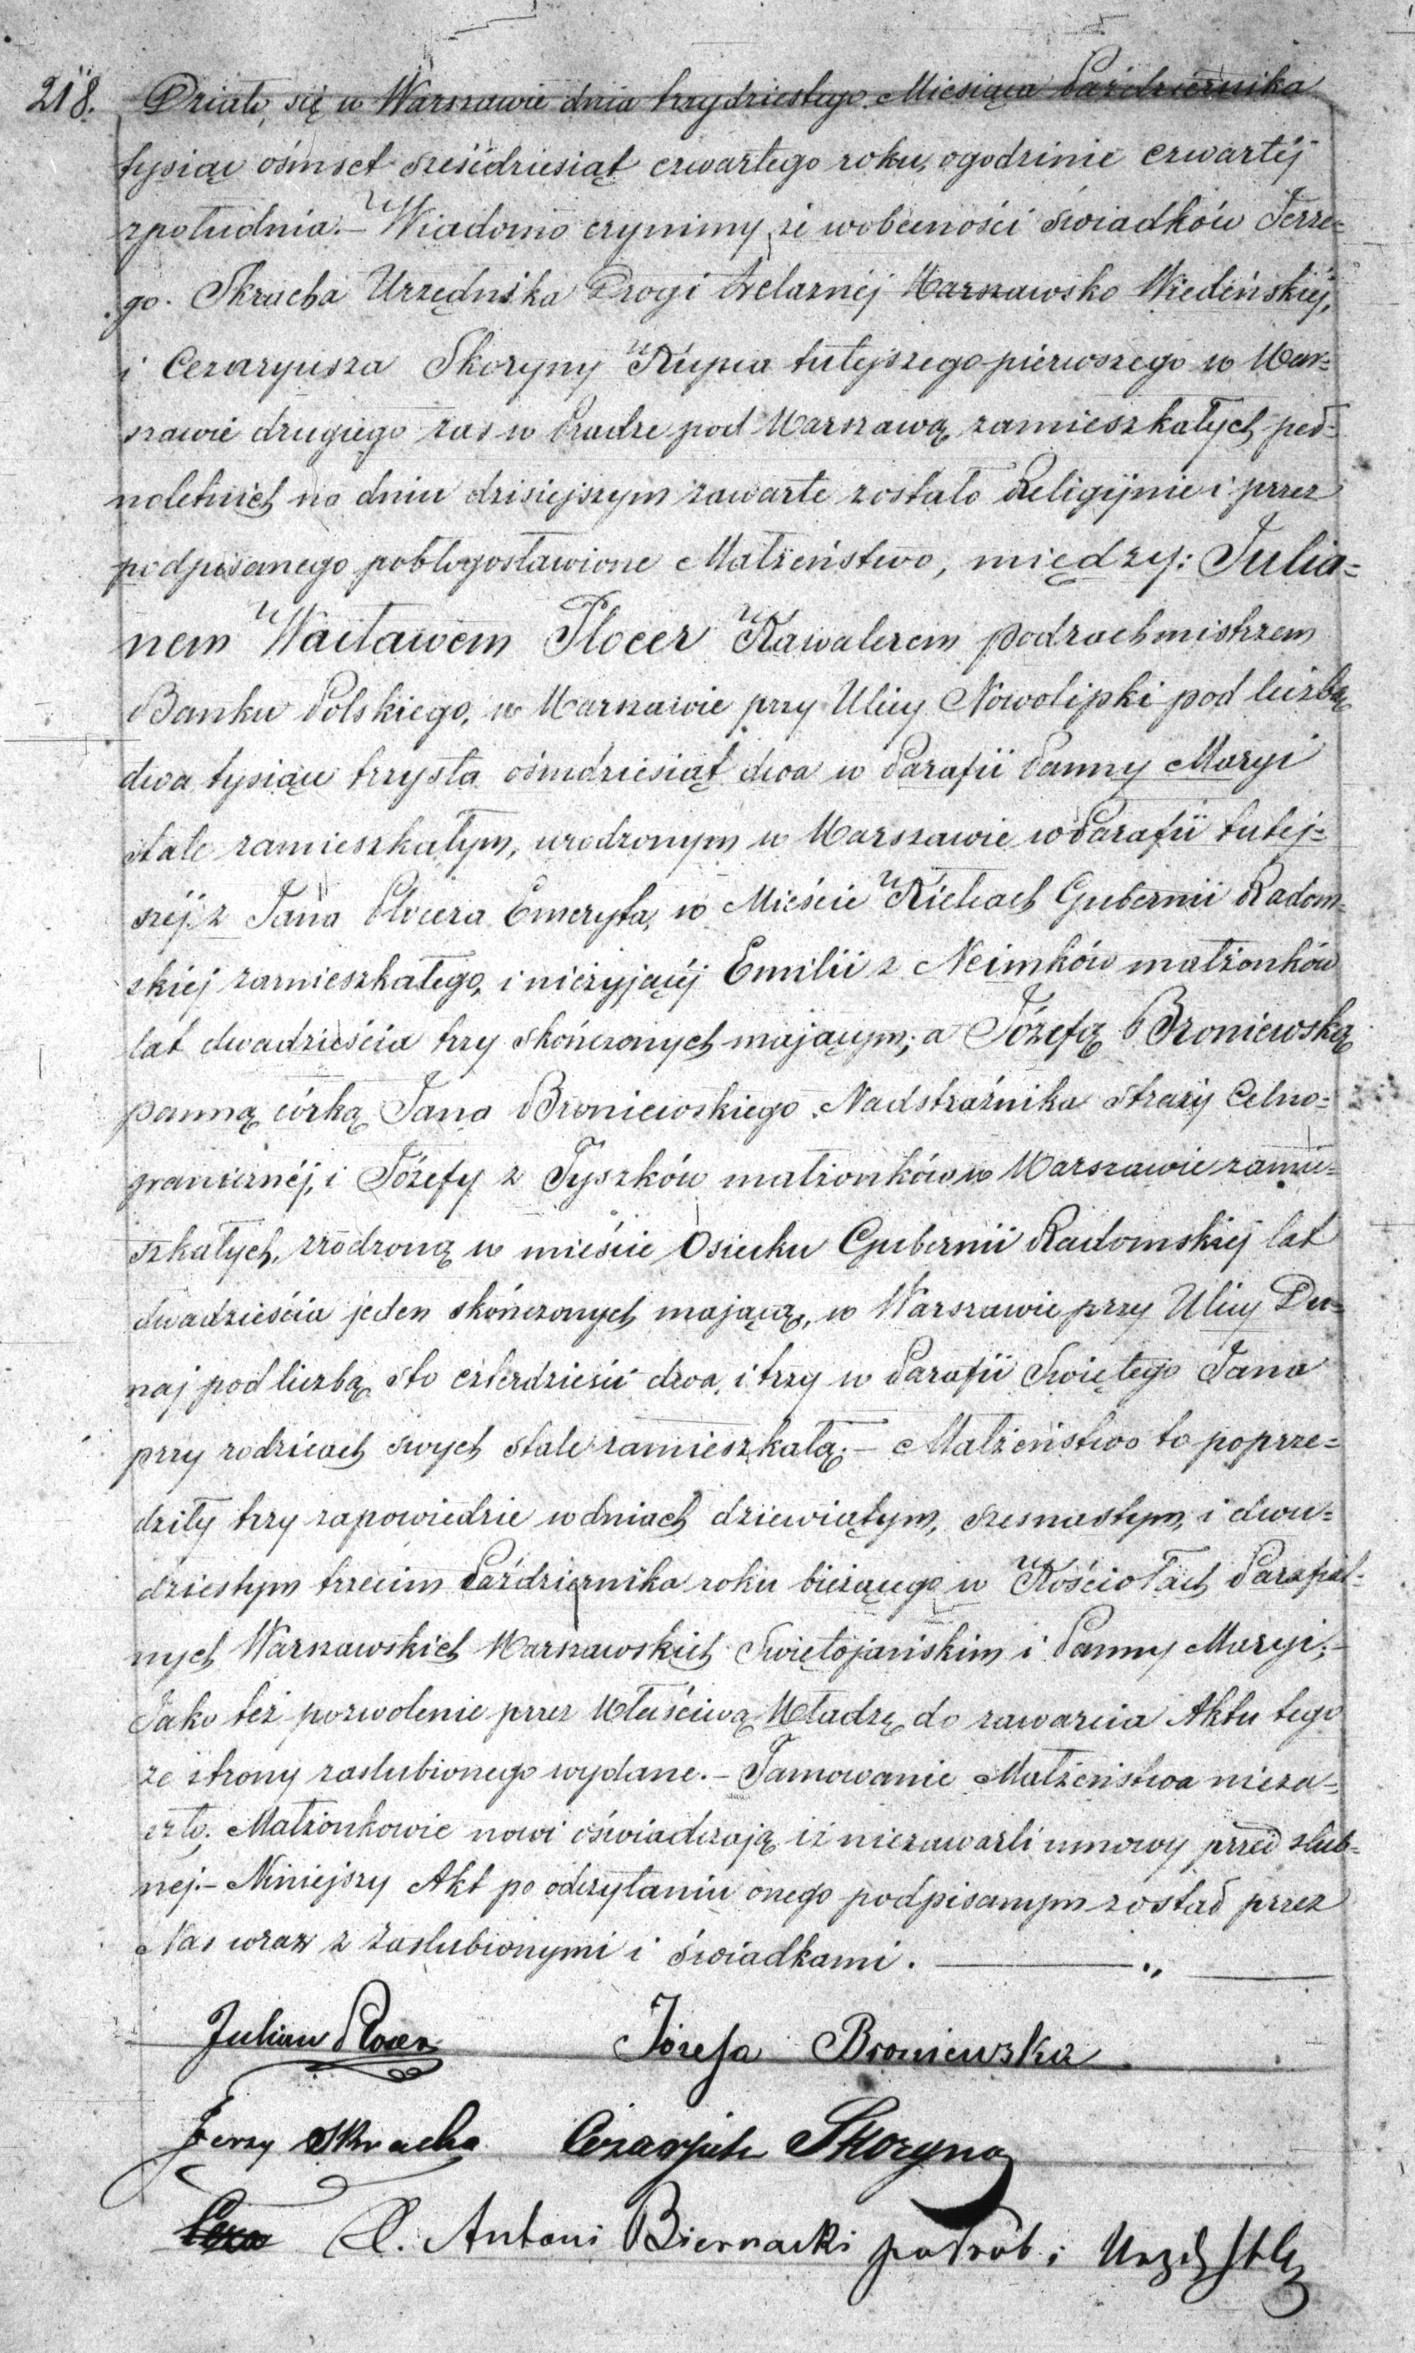 218. Działo się w Warszawie dnia trzydziestego Miesiąca Października
tysiąc ośmset sześćdziesiąt czwartego roku, ogodzinie czwartéj
zpołudnia. – Wiadomo czynimy że wobecności świadków Jerze=
go Skracha Urzędnika Drogi Żelaznéj Warszawsko Wiedeńskiéj,
i Cezaryusza Skoryny Kupca tutejszego pierwszego w War=
szawie drugiego zas w Pradze pod Warszawą zamieszkałych peł=
noletnich na dniu dzisiejszym zawarte zostało Religijnie i przez
podpisanego pobłogosławione Małżeństwo, między: Julia=
nem Wacławem Plocer Kawalerem podrachmistrzem
Banku Polskiego, w Warszawie przy Ulicy Nowolipki pod liczbą
dwa tysiące trzysta ośmdziesiąt dwa w Parafii Panny Maryi
stale zamieszkałym, urodzonym w Warszawie w Parafii tutej=
széj z Jana Plocera Emeryta, w Mieście Kielcach Gubernii Radom=
skiej zamieszkałego, i nieżyjącéj Emilii z Neimków małżonków
lat dwadzieścia trzy skończonych mającym; a Józefą Broniewską
panną córką Jana Broniewskiego Nadstrażnika straży Celno=
granicznéj, i Józefy z Tyszków małżonków w Warszawie zamie=
szkałych, zrodzoną w mieście Osiecku Gubernii Radomskiej lat
dwadzieścia jeden skończonych mającą, w Warszawie przy Ulicy Du=
naj pod liczbą sto czterdzieści dwa, i trzy w Parafii Swiętego Jana
przy rodzicach swych stale zamieszkałą. – Małżeństwo to poprze=
dziły trzy zapowiedzie w dniach dziewiątym, szesnastym, i dwu=
dziestym trzecim Października roku bieżącego w Kościołach Parafial=
nych Warszawskich Warszawskich Swiętojańskim i Panny Maryi; –
Jako też pozwolenie przez Właściwą Władzę do zawarcia Aktu tego
ze strony zaslubionego wydane. – Tamowanie Małżeństwa nieza=
szło. Małżonkowie nowi oświadczają iż niezawarli umowy przed slub=
nej. – Niniejszy Akt po odczytaniu onego podpisanym został przez
Nas wraz z zaslubionymi i świadkami. ———— „ ————
Julian Plocer Józefa Broniewska
Jerzy Skracha Cezaryusz Skoryna
X. Antoni Biernacki